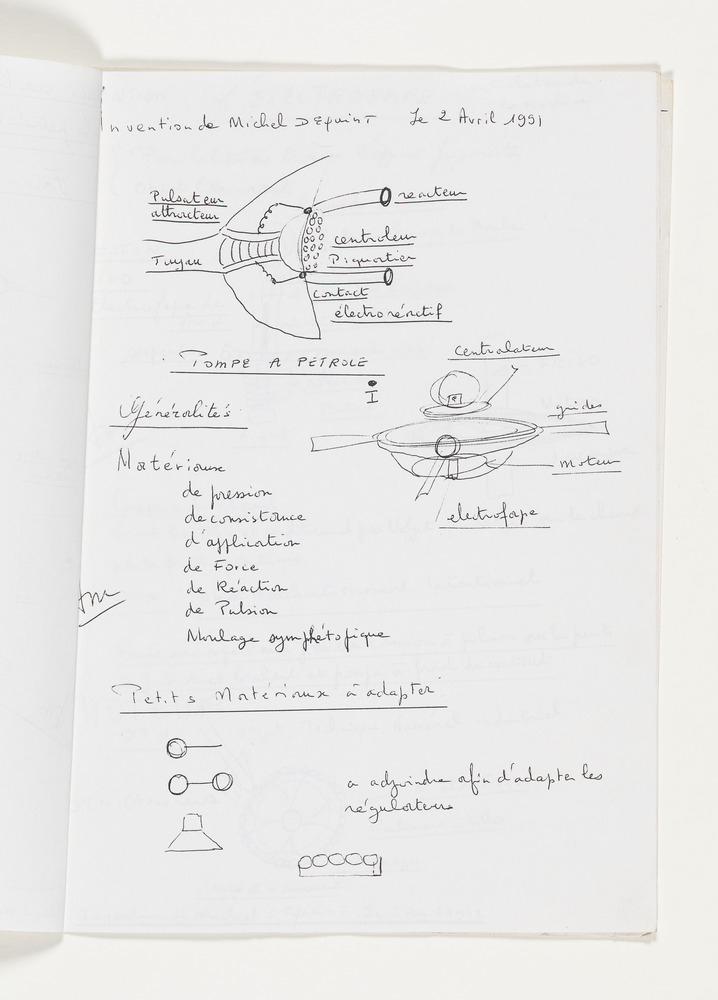 Invention de Michel DEquinT Le 2 Avril 1991
Pulsateur
attracteur
reacteur
centroleur
Piquortier
Tuyau
contact
électroréactif
POMPE A PETROLE
I
centrolateur
guides
moteur
electrofope
Générolités
Matérioux
de pression
de consistance
d'application
de Force
de Réaction
de Pulsion
Moulage symphétopique
Petits Matérioux à adapter
a adjoindre afin d'adapter les
régulateurs